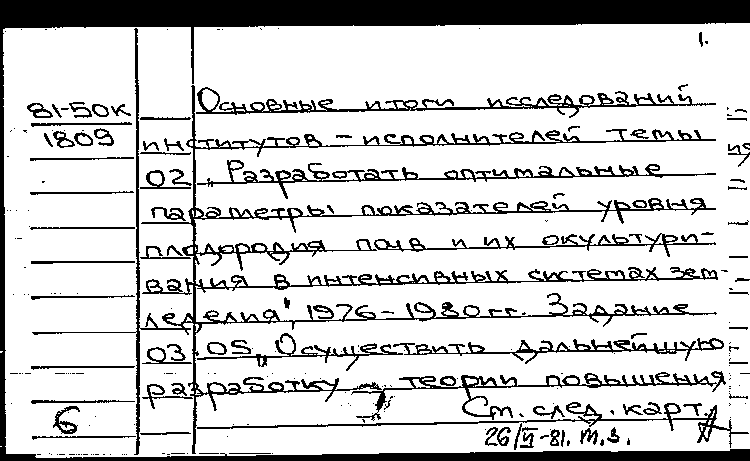 1.
81-50к
1809
Основные итоги исследований
институтов - исполнителей темы
02 „Разработать оптимальные
параметры показателей уровня
плодородия почв и их окультури-
вания в интенсивных системах зем-
леделия", 1976-1980 гг. Задание
03.05 „Осуществить дальнейшую
разработку теории повышения
6
См. след. карт.
26/VI-81. т.з.